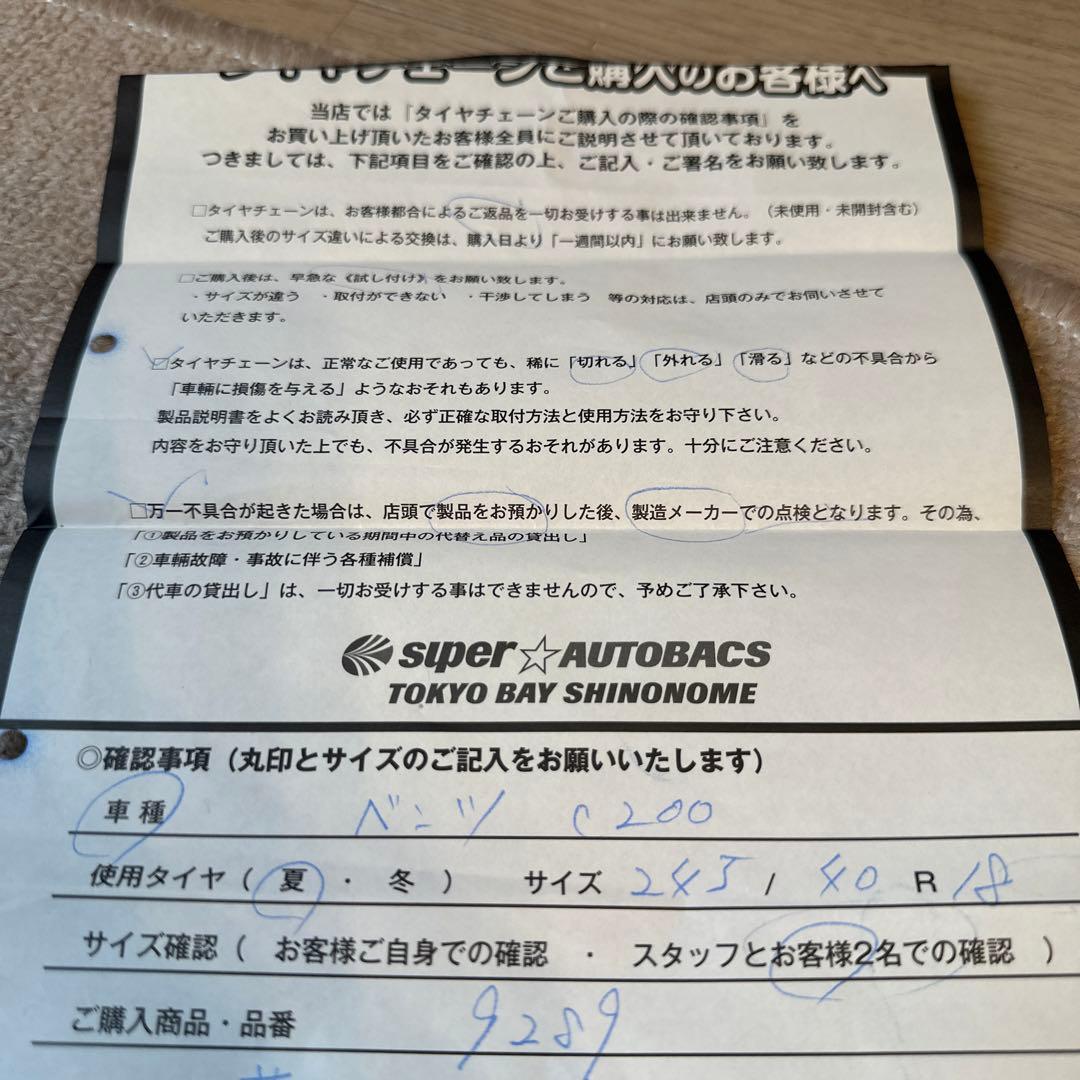 タイヤチェーンご購入のお客様へ
当店では『タイヤチェーンご購入の際の確認事項』を
お買い上げ頂いたお客様全員にご説明させて頂いております。
つきましては、下記項目をご確認の上、ご記入・ご署名をお願い致します。
□タイヤチェーンは、お客様都合によるご返品を一切お受けする事は出来ません。（未使用・未開封含む）
ご購入後のサイズ違いによる交換は、購入日より「一週間以内」にお願い致します。
□ご購入後は、早急な《試し付け》をお願い致します。
・サイズが違う ・取付ができない ・干渉してしまう 等の対応は、店頭のみでお伺いさせて
いただきます。
□タイヤチェーンは、正常なご使用であっても、稀に「切れる」「外れる」「滑る」などの不具合から
「車輌に損傷を与える」ようなおそれもあります。
製品説明書をよくお読み頂き、必ず正確な取付方法と使用方法をお守り下さい。
内容をお守り頂いた上でも、不具合が発生するおそれがあります。十分にご注意ください。
□万一不具合が起きた場合は、店頭で製品をお預かりした後、製造メーカーでの点検となります。その為、
「①製品をお預かりしている期間中の代替え品の貸出し」
「②車輌故障・事故に伴う各種補償」
「③代車の貸出し」は、一切お受けする事はできませんので、予めご了承下さい。
super☆AUTOBACS
TOKYO BAY SHINONOME
◎確認事項（丸印とサイズのご記入をお願いいたします）
車種 ベンツ C200
使用タイヤ（ 夏 ・ 冬 ） サイズ 245 / 40 R 18
サイズ確認（ お客様ご自身での確認 ・ スタッフとお客様2名での確認 ）
ご購入商品・品番 9289